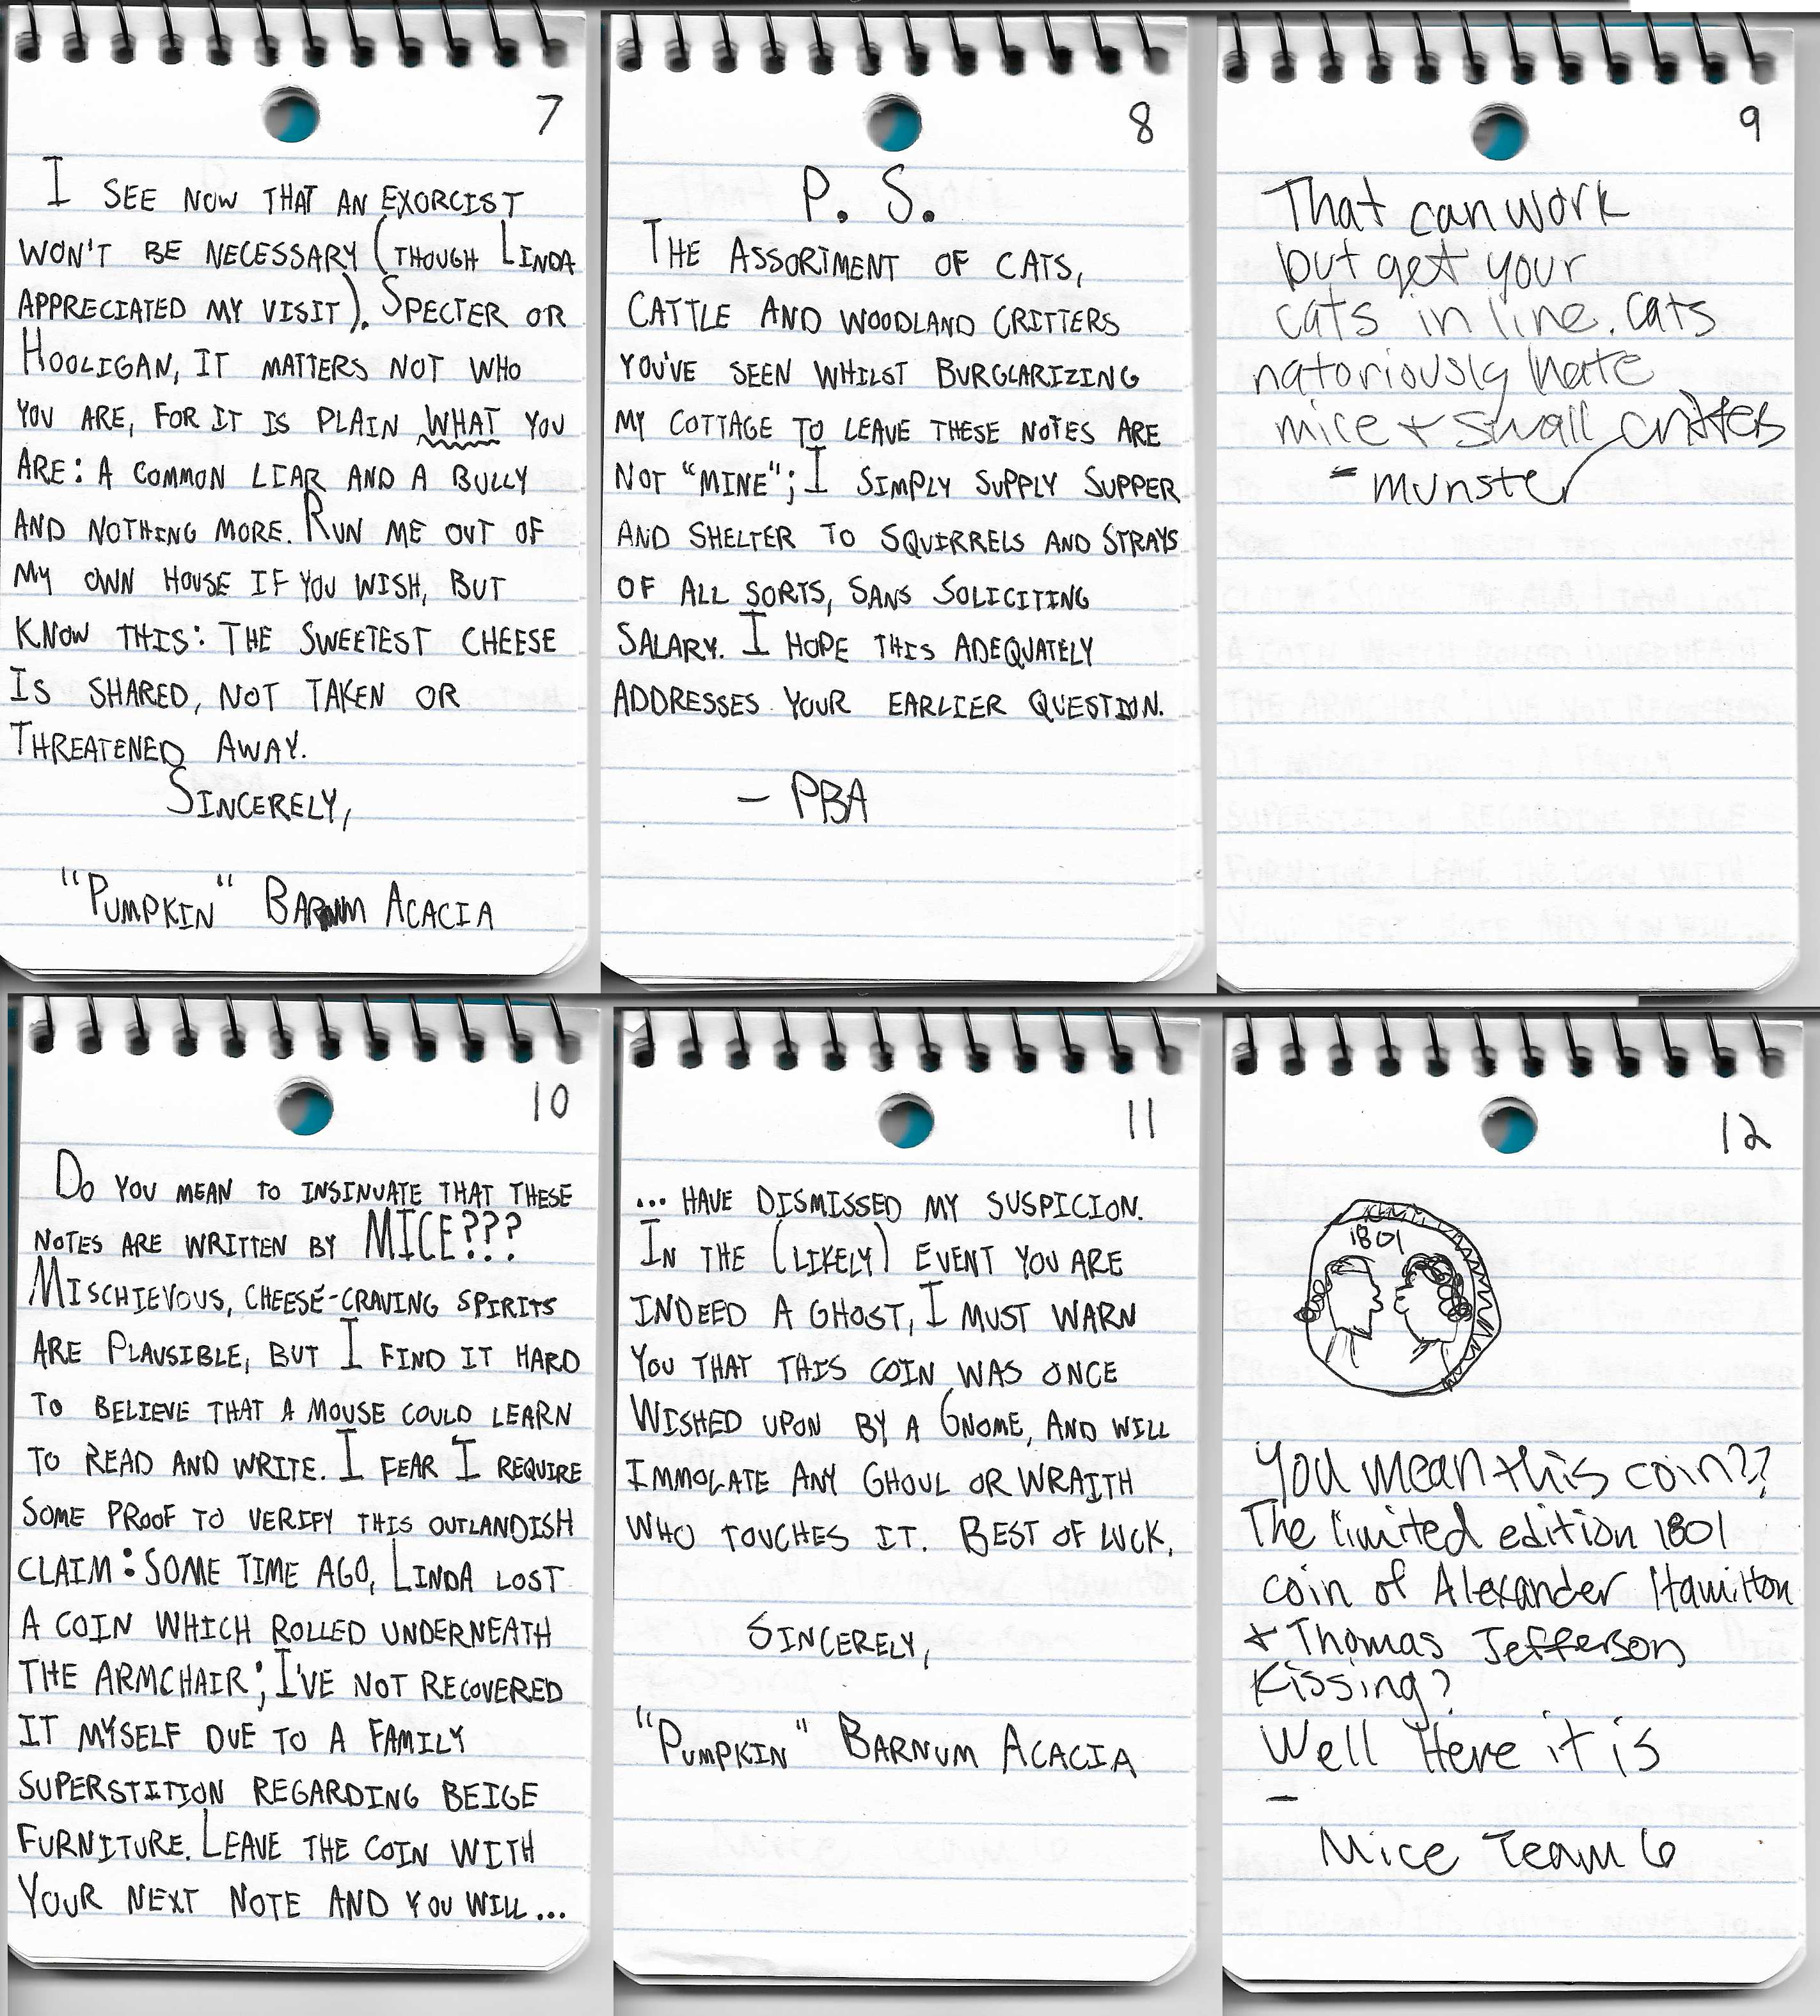 7
I SEE NOW THAT AN EXORCIST
WON'T BE NECESSARY (THOUGH LINDA
APPRECIATED MY VISIT). SPECTER OR
HOOLIGAN, IT MATTERS NOT WHO
YOU ARE, FOR IT IS PLAIN WHAT YOU
ARE: A COMMON LIAR AND A BULLY
AND NOTHING MORE. RUN ME OUT OF
MY OWN HOUSE IF YOU WISH, BUT
KNOW THIS: THE SWEETEST CHEESE
IS SHARED, NOT TAKEN OR
THREATENED AWAY.
SINCERELY,
"PUMPKIN" BARNUM ACACIA
8
P. S.
THE ASSORTMENT OF CATS,
CATTLE AND WOODLAND CRITTERS
YOU'VE SEEN WHILST BURGLARIZING
MY COTTAGE TO LEAVE THESE NOTES ARE
NOT "MINE"; I SIMPLY SUPPLY SUPPER
AND SHELTER TO SQUIRRELS AND STRAYS
OF ALL SORTS, SANS SOLICITING
SALARY. I HOPE THIS ADEQUATELY
ADDRESSES YOUR EARLIER QUESTION.
- PBA
9
That can work
but get your
cats in line. cats
natoriously hate
mice + small critters
- munster
10
DO YOU MEAN TO INSINUATE THAT THESE
NOTES ARE WRITTEN BY MICE???
MISCHIEVOUS, CHEESE-CRAVING SPIRITS
ARE PLAUSIBLE, BUT I FIND IT HARD
TO BELIEVE THAT A MOUSE COULD LEARN
TO READ AND WRITE. I FEAR I REQUIRE
SOME PROOF TO VERIFY THIS OUTLANDISH
CLAIM: SOME TIME AGO, LINDA LOST
A COIN WHICH ROLLED UNDERNEATH
THE ARMCHAIR; I'VE NOT RECOVERED
IT MYSELF DUE TO A FAMILY
SUPERSTITION REGARDING BEIGE
FURNITURE. LEAVE THE COIN WITH
YOUR NEXT NOTE AND YOU WILL...
11
... HAVE DISMISSED MY SUSPICION.
IN THE (LIKELY) EVENT YOU ARE
INDEED A GHOST, I MUST WARN
YOU THAT THIS COIN WAS ONCE
WISHED UPON BY A GNOME, AND WILL
IMMOLATE ANY GHOUL OR WRAITH
WHO TOUCHES IT. BEST OF LUCK.
SINCERELY,
"PUMPKIN" BARNUM ACACIA
12
1801
You mean this coin??
The limited edition 1801
coin of Alexander Hamilton
+ Thomas Jefferson
Kissing?
Well Here it is
-
Mice Team 6